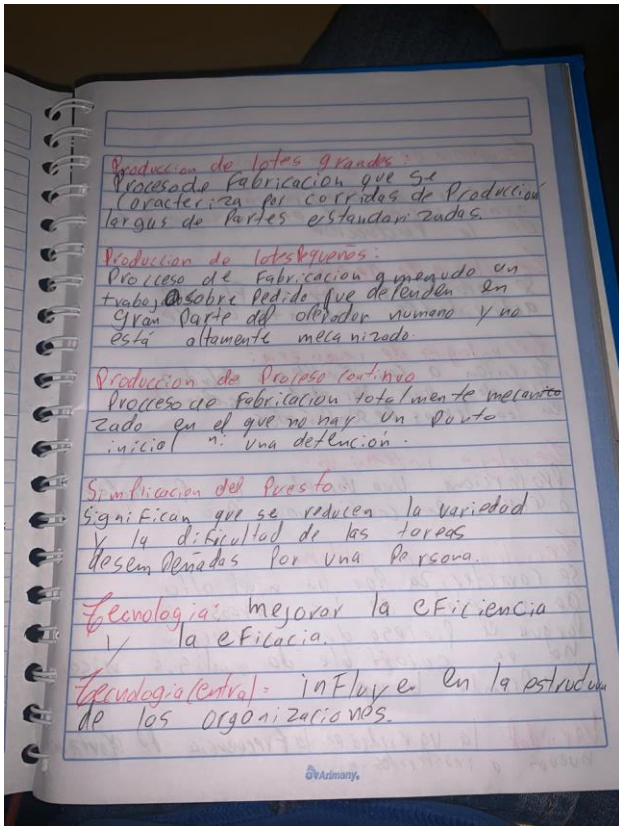 Produccion de lotes grandes:
Procesode Fabricacion que se
Caracteriza por corridas de Produccion
largus de Partes estandarizadas.
Produccion de lotesPequeños:
Proccesso de Fabricacion a menudo un
trabajo sobre Pedido que dependen en
gran Parte del operador humano y no
está altamente mecanizado.
Produccion de Proceso Continuo
Proccesso de Fabricacion totalmente mecanico
zado en el que no hay un Punto
inicial ni una detención.
Simplicacion del Puesto
significan que se reducen la variedad
y la dificultad de las tareas
desempeñadas Por una Persona.
Tecnologia: mejorar la eFiciencia
y la eficacia.
Tecnologia Central: inFluye en la estructura
de las organizaciones.
Arimany.